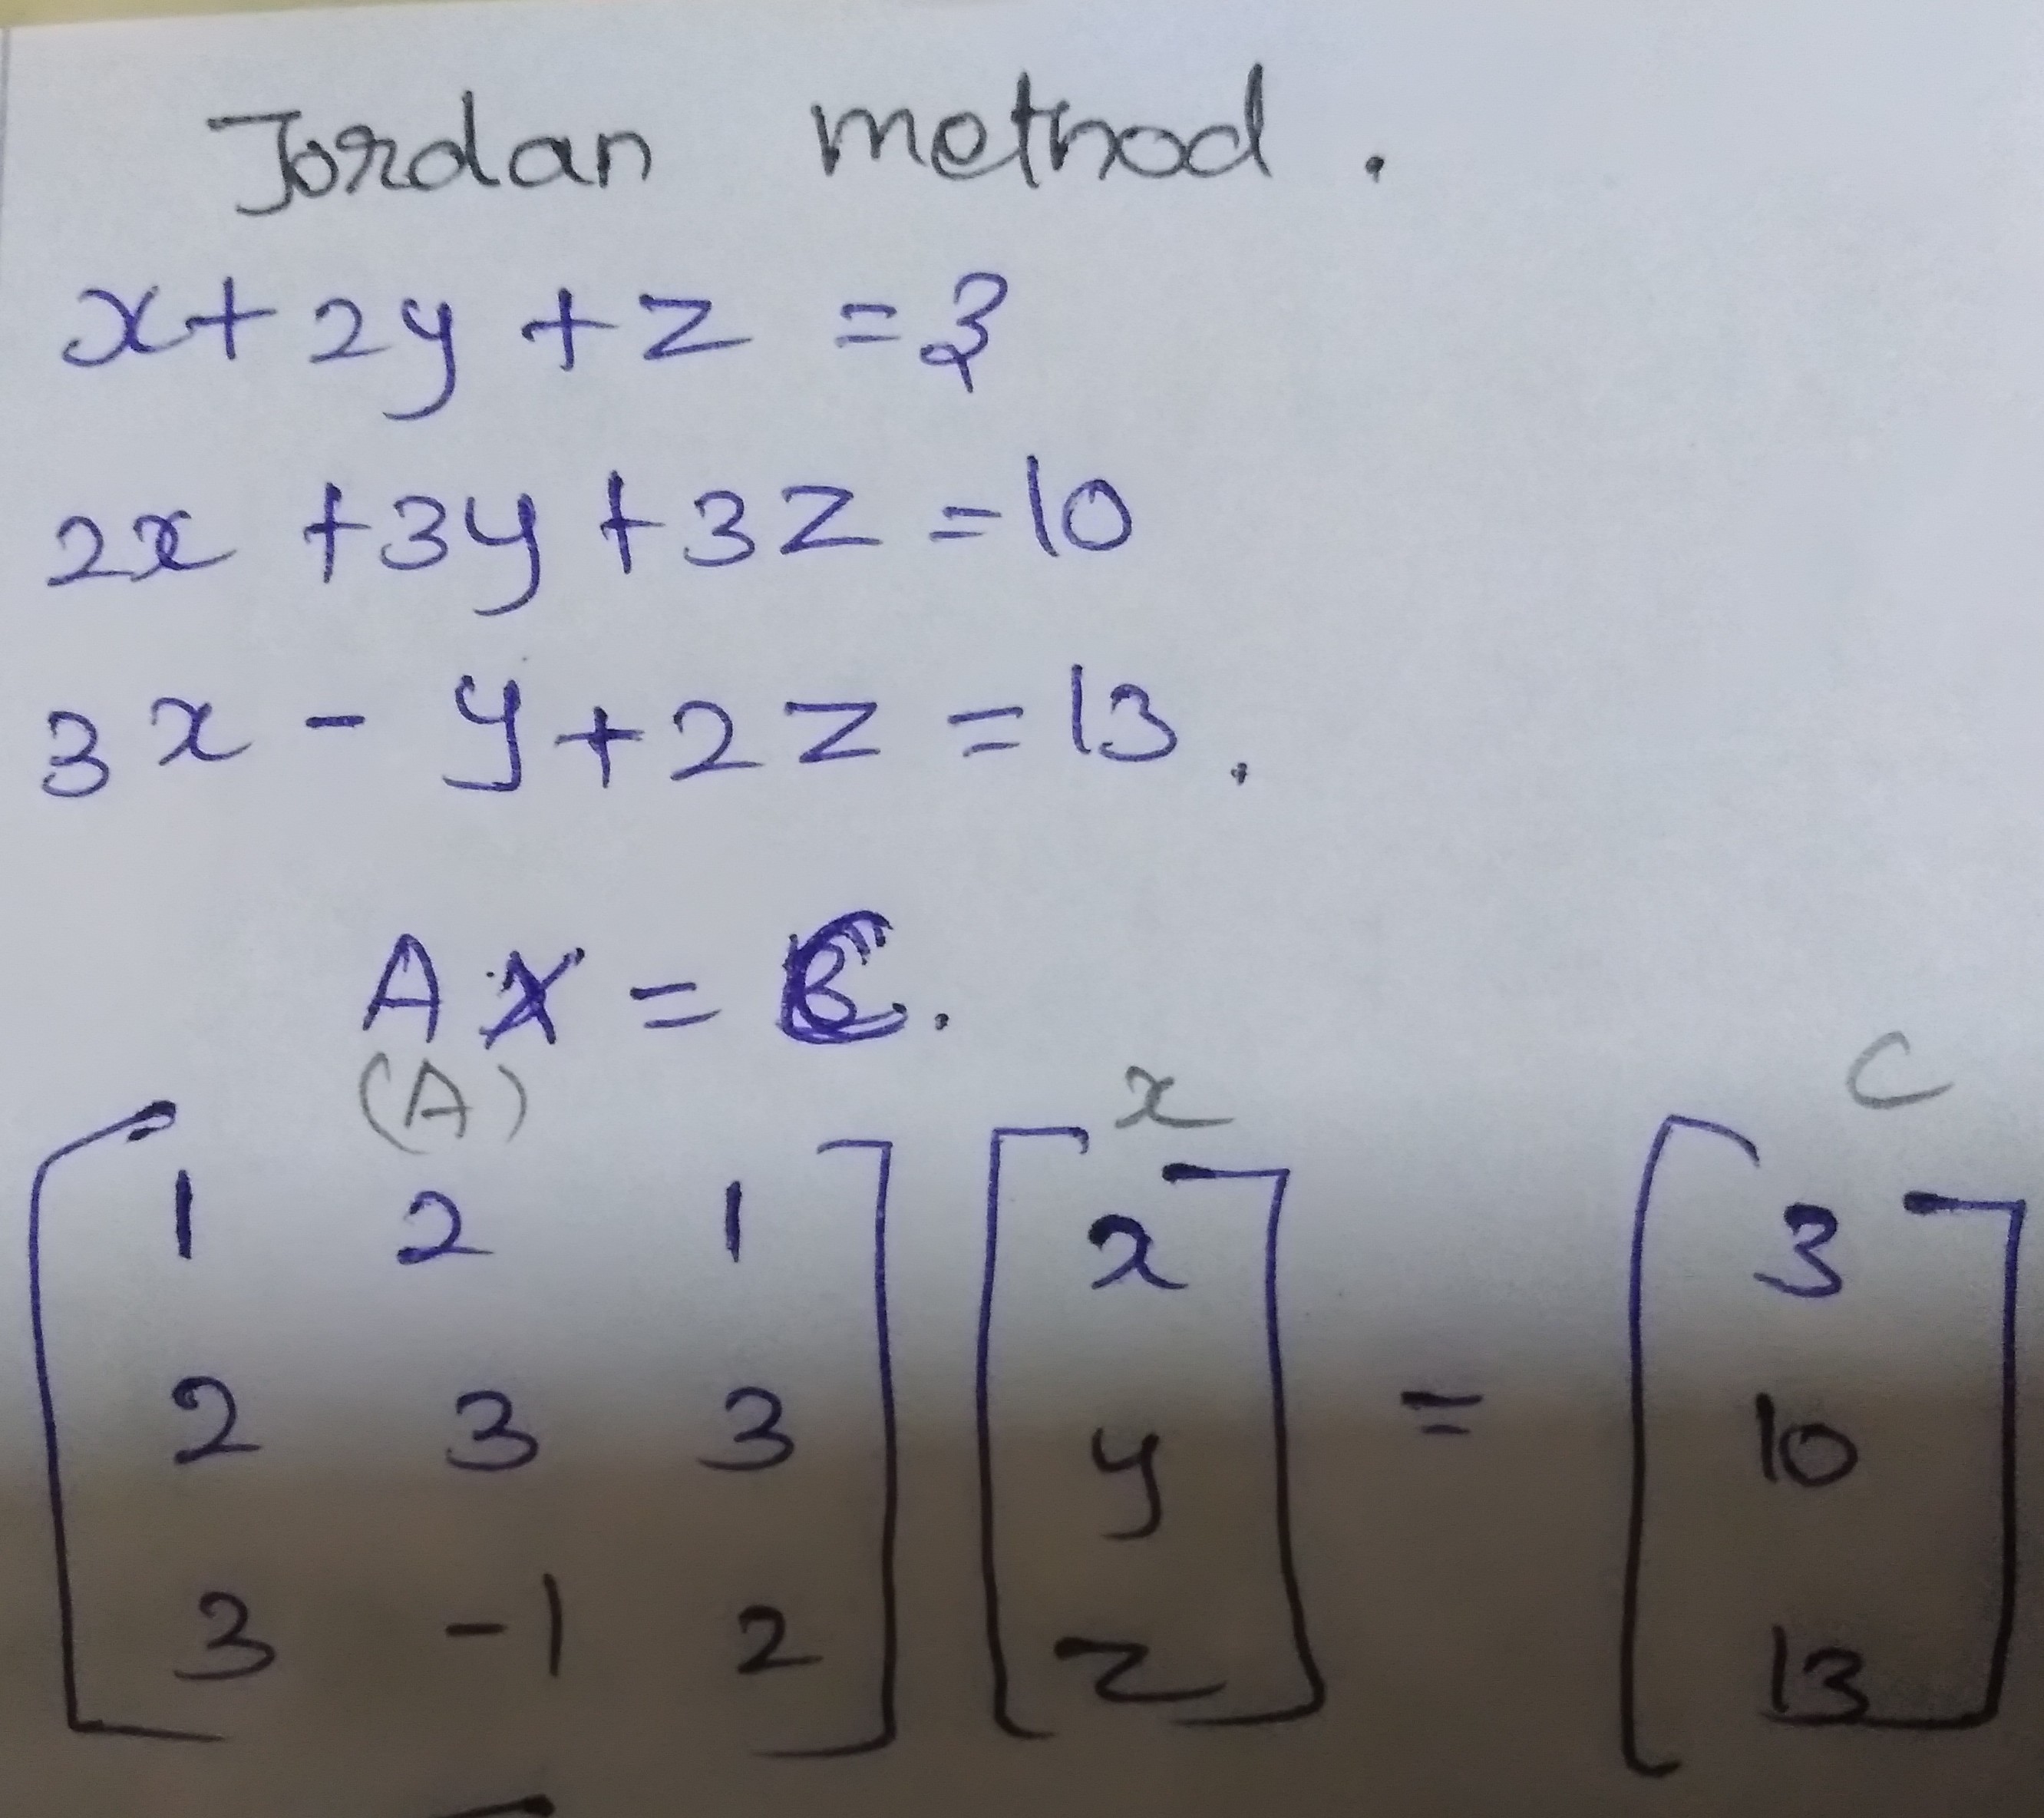 Jordan method.
x + 2y + z = 3
2x + 3y + 3z = 10
3x - y + 2z = 13.
AX = C.
(A) x C
1 2 1 x 3
2 3 3 y = 10
3 -1 2 z 13